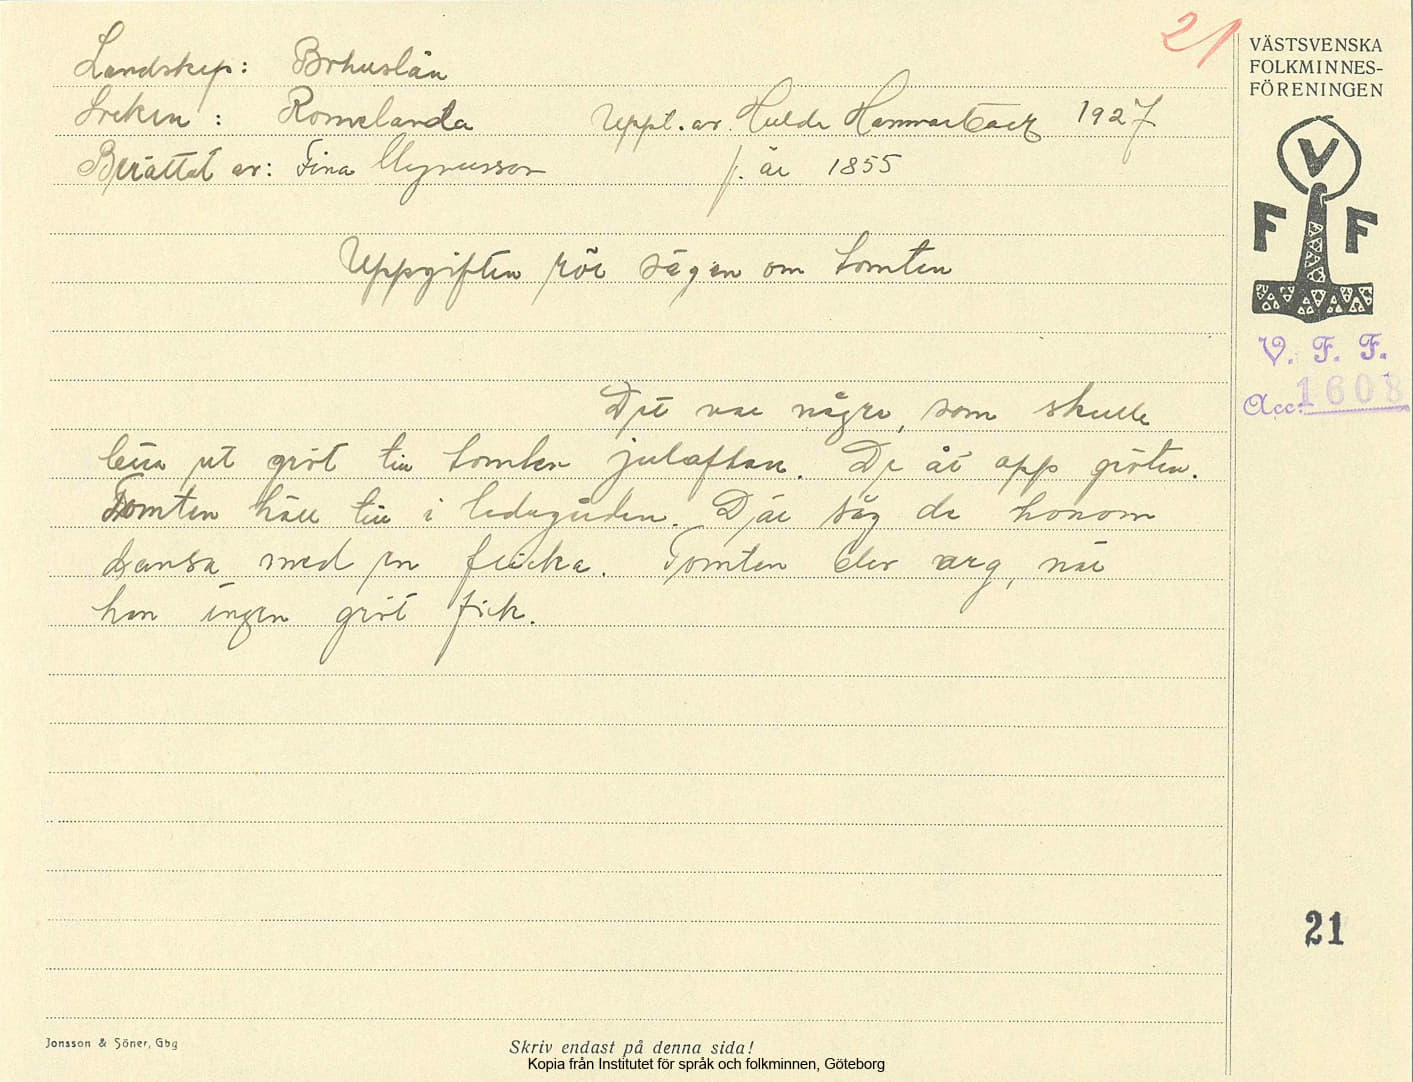 21
VÄSTSVENSKA
FOLKMINNES-
FÖRENINGEN
V
F F
V. F. F.
Acc: 1608
Landskap: Bohuslän
Socken: Romelanda Uppt. av Hulda Hammarbäck 1927
Berättat av: Fina Magnusson f. år 1855
Uppgiften rör sägen om tomten
Det var några, som skulle
bära ut gröt till tomten julaftan. De åt opp gröten.
Tomten höll till i ladugården. Där såg de honom
dansa med en flicka. Tomten blev arg, när
han ingen gröt fick.
21
Jonsson & Söner, Gbg
Skriv endast på denna sida!
Kopia från Institutet för språk och folkminnen, Göteborg